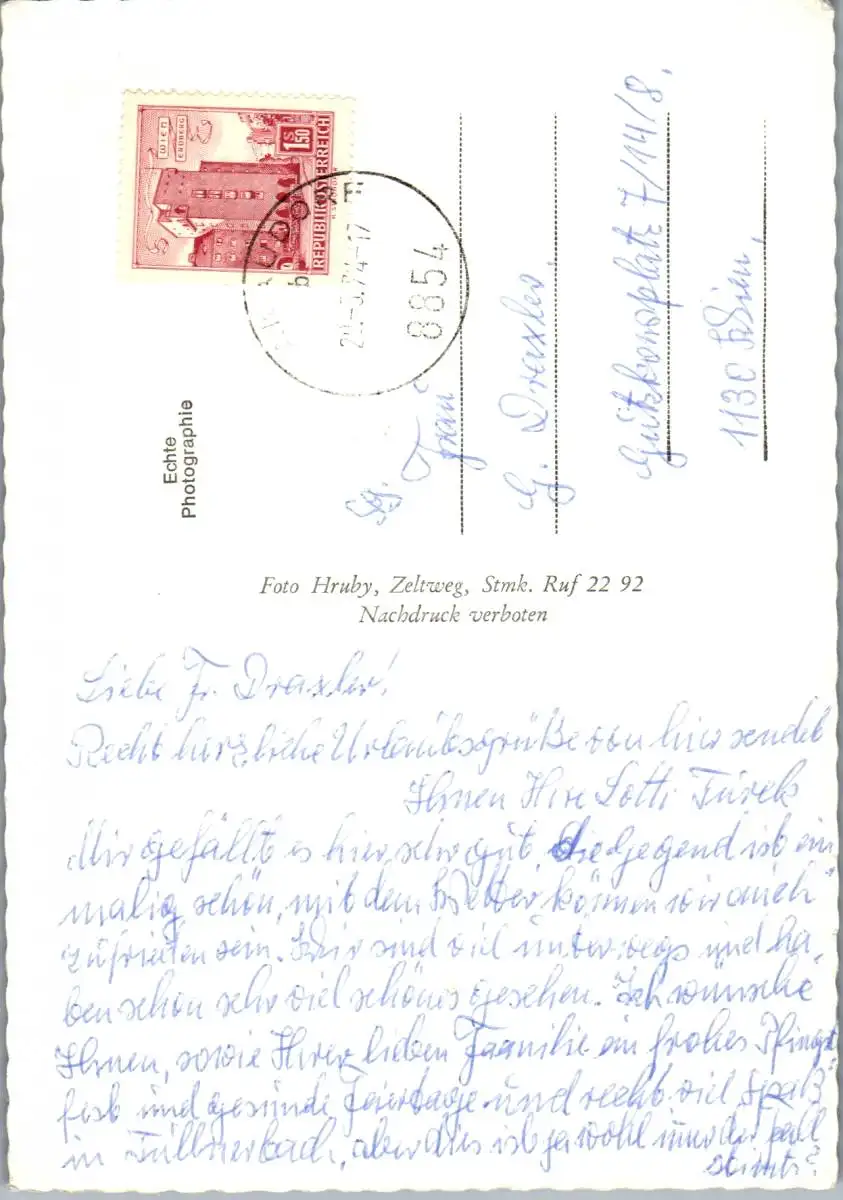 WIEN
ERDBERG
1.50
S
REPUBLIK ÖSTERREICH
8854
Echte
Photographie
Frau
G. Draxler,
7/14/8,
1130 Wien,
Foto Hruby, Zeltweg, Stmk. Ruf 22 92
Nachdruck verboten
Liebe Fr. Draxler!
Recht herzliche Urlaubsgrüße von hier sendet
Ihnen Ihre Lotti Turek
Mir gefällt es hier sehr gut, die Gegend ist ein
malig schön, mit dem Wetter können wir auch
zufrieden sein. Wir sind viel unterwegs und ha-
ben schon sehr viel schönes gesehen. Ich wünsche
Ihnen, sowie Ihrer lieben Familie ein frohes Pfingst-
fest und gesunde Feiertage und recht viel Spaß
in Tullnerbach, aber dies ist ja wohl immer der Fall
stimts?